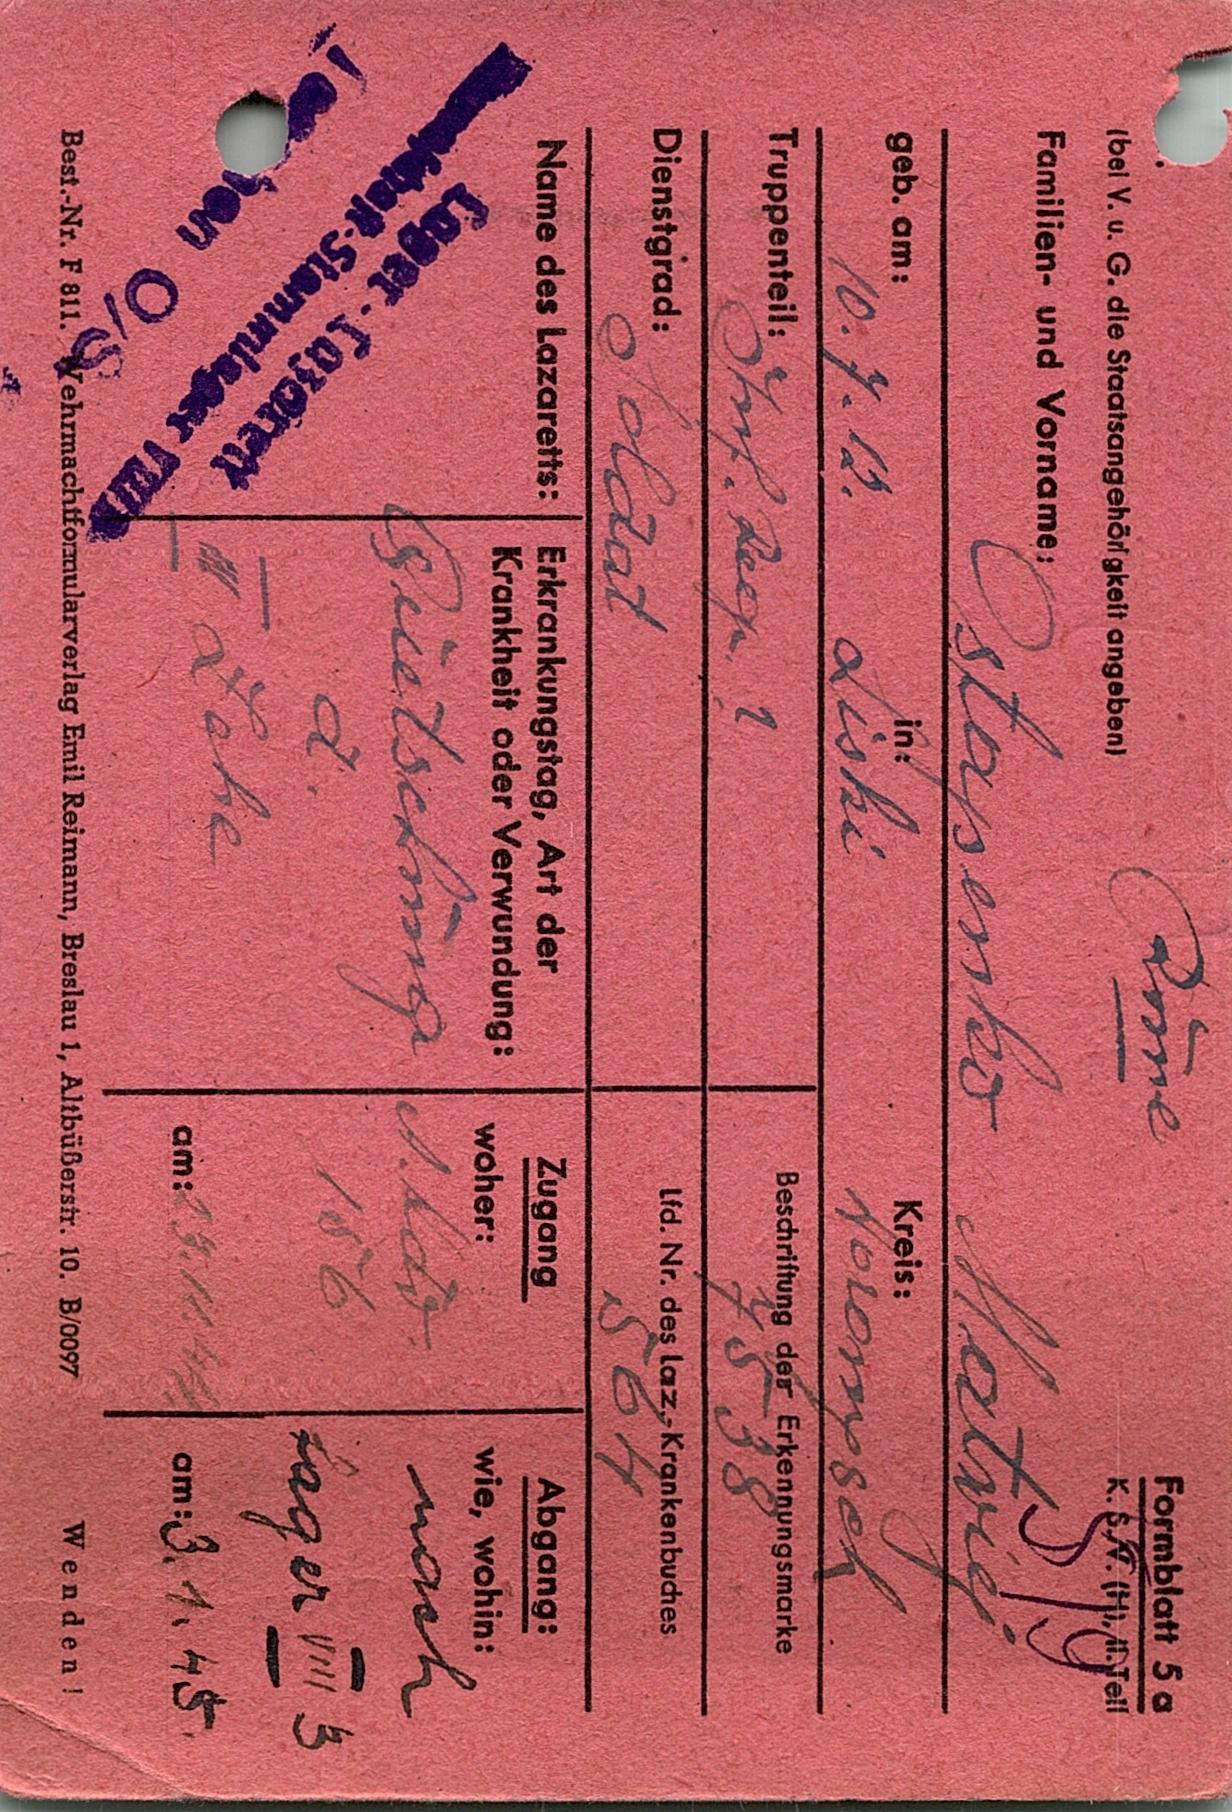 Formblatt 5a
K. S. N. (H), II. Teil
(bei V. u. G. die Staatsangehörigkeit angeben)
Familien- und Vorname: Ostapenko Matwij
geb. am: 10. 7. 12. in: Liski Kreis:
Truppenteil: Inf. Reg. ? Beschriftung der Erkennungsmarke
7538
Dienstgrad: Soldat Lfd. Nr. des Laz.-Krankenbuches
564
Name des Lazaretts:
Lager-Lazarett
-Stammlager VIII B
O/S
Erkrankungstag, Art der
Krankheit oder Verwundung:
Quetschung
d.
Zehe
Zugang
woher:
A. Kdo.
156
am:
Abgang:
wie, wohin:
nach
Lager VIII 3
am: 3. 1. 45.
Best.-Nr. F 811. Wehrmachtformularverlag Emil Reimann, Breslau 1, Altbüßerstr. 10. B/0097 Wenden!